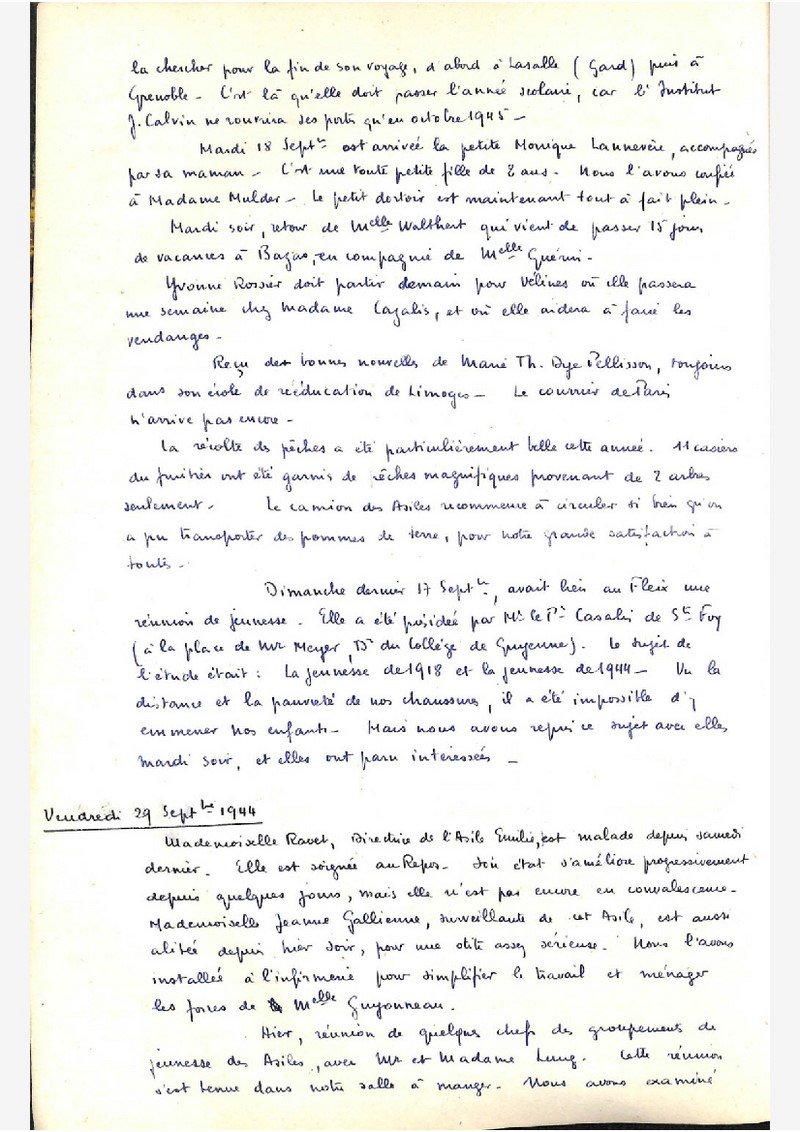 la chercher pour la fin de son voyage, d'abord à Lasalle (Gard) puis à
Grenoble - C'est là qu'elle doit passer l'année scolaire, car l'Institut
J. Calvin ne rouvrira ses portes qu'en octobre 1945 -
Mardi 18 Septbre est arrivée la petite Monique Lannevère, accompagnée
par sa maman - C'est une toute petite fille de 2 ans. Nous l'avons confiée
à Madame Mulder - Le petit dortoir est maintenant tout à fait plein -
Mardi soir, retour de Melle Walthert qui vient de passer 15 jours
de vacances à Bazas, en compagnie de Melle Guérin -
Yvonne Rossier doit partir demain pour Vélines où elle passera
une semaine chez Madame Cazalis, et où elle aidera à faire les
vendanges -
Reçu des bonnes nouvelles de Marie Th. Dye Pellisson, toujours
dans son école de rééducation de Limoges - Le courrier de Paris
n'arrive pas encore -
La récolte des pêches a été particulièrement belle cette année. 11 casiers
du fruitier ont été garnis de pêches magnifiques provenant de 2 arbres
seulement - Le camion des Asiles recommence à circuler si bien qu'on
a pu transporter des pommes de terre, pour notre grande satisfaction à
toutes -
Dimanche dernier 17 Septbre, avait lieu au Fleix une
réunion de jeunesse - Elle a été présidée par Mr le Pr Casalis de Ste Foy
(à la place de Mr Meyer, Dr du Collège de Guyenne). Le sujet de
l'étude était : La jeunesse de 1918 et la jeunesse de 1944 - Vu la
distance et la pauvreté de nos chaussures, il a été impossible d'y
emmener nos enfants - Mais nous avons repris ce sujet avec elles
mardi soir, et elles ont paru intéressées -
Vendredi 29 Septbre 1944
Mademoiselle Ravet, Directrice de l'Asile Emilie, est malade depuis samedi
dernier. Elle est soignée au Repos - Son état s'améliore progressivement
depuis quelques jours, mais elle n'est pas encore en convalescence -
Mademoiselle Jeanne Gallienne, surveillante de cet Asile, est aussi
alitée depuis hier soir, pour une otite assez sérieuse. Nous l'avons
installée à l'infirmerie pour simplifier le travail et ménager
les forces de Melle Guyonneau.
Hier, réunion de quelques chefs des groupements de
jeunesse des Asiles, avec Mr et Madame Lung. Cette réunion
s'est tenue dans notre salle à manger - Nous avons examiné